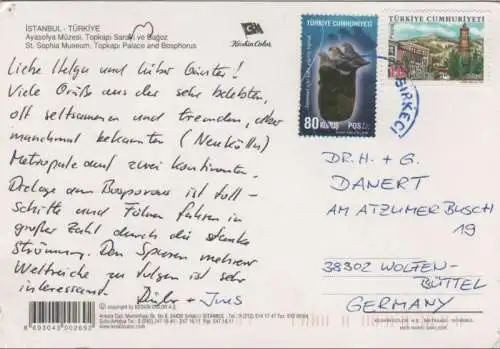 İSTANBUL - TÜRKİYE
Ayasofya Müzesi, Topkapı Sarayı ve Boğaz
St. Sophia Museum, Topkapı Palace and Bosphorus
Keskin Color
TÜRKİYE CUMHURİYETİ
80 KURUŞ POSTA
TÜRKİYE CUMHURİYETİ
SİRKECİ
Liebe Helga und lieber Günter!
Viele Grüße aus der sehr belebten,
oft seltsamen und fremden, aber
manchmal bekannten (Neukölln)
Metropole auf zwei Kontinenten.
Die Lage am Bosporus ist toll –
Schiffe und Fähren fahren in
großer Zahl durch die starke
Strömung. Den Spuren mehrerer
Weltreiche zu folgen ist sehr
interessant.
+ Ines
DR. H. + G.
DANERT
AM ATZUMER BUSCH
19
38302 WOLFEN-
BÜTTEL
GERMANY
8693043002692
© copyright by KESKİN COLOR A.Ş.
www.keskincolor.com